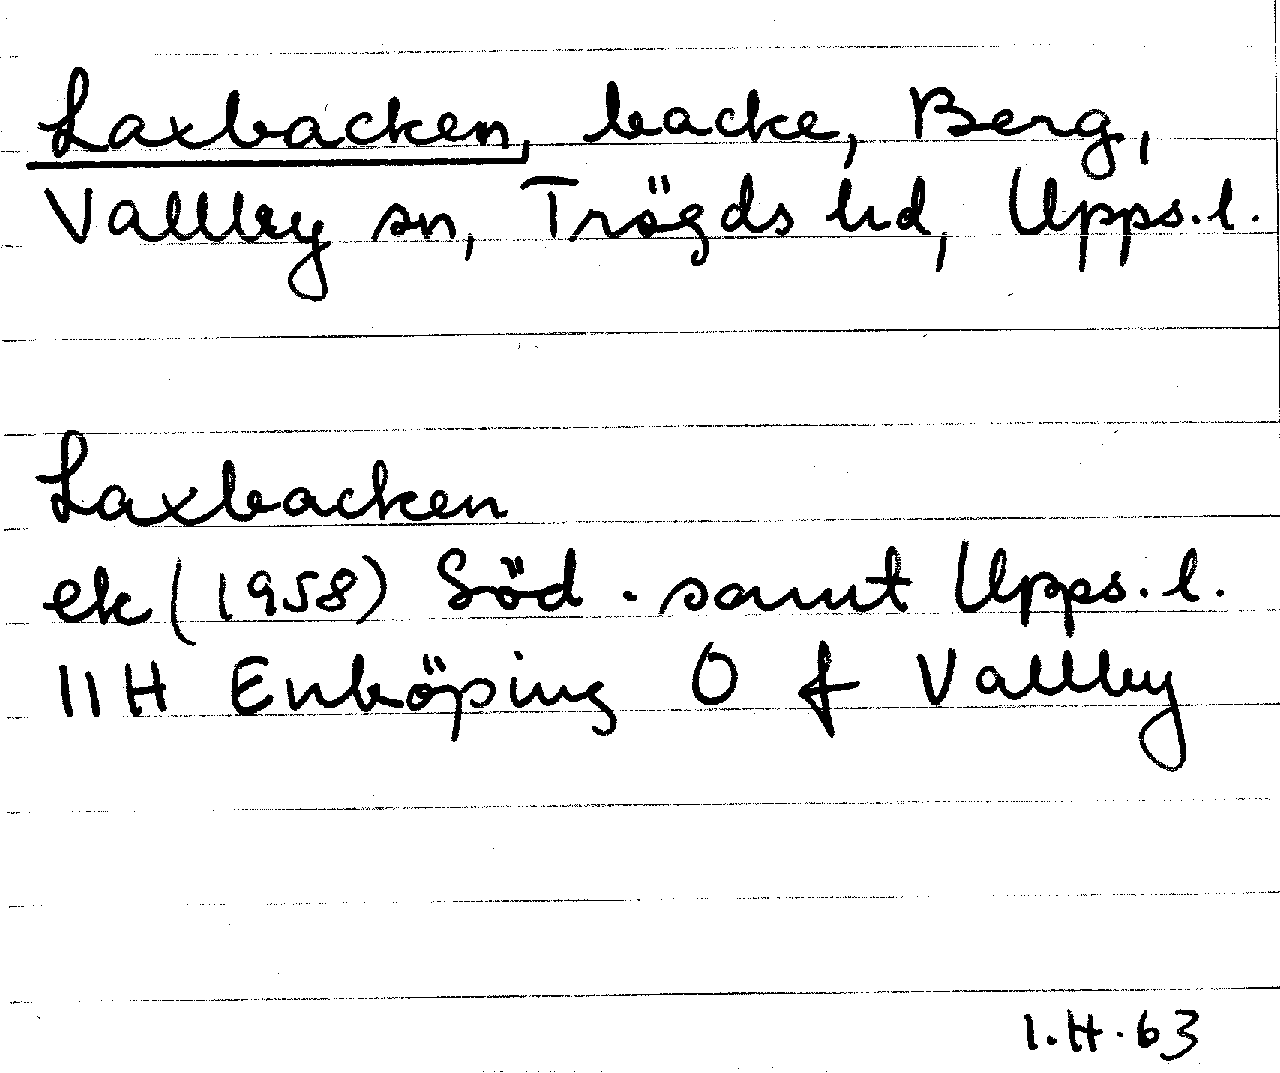 Laxbacken, backe, Berg,
Vallby sn, Trögds hd, Upps.l.
Laxbacken
ek (1958) Söd. samt Upps.l.
11H Enköping O f Vallby
I.H.63